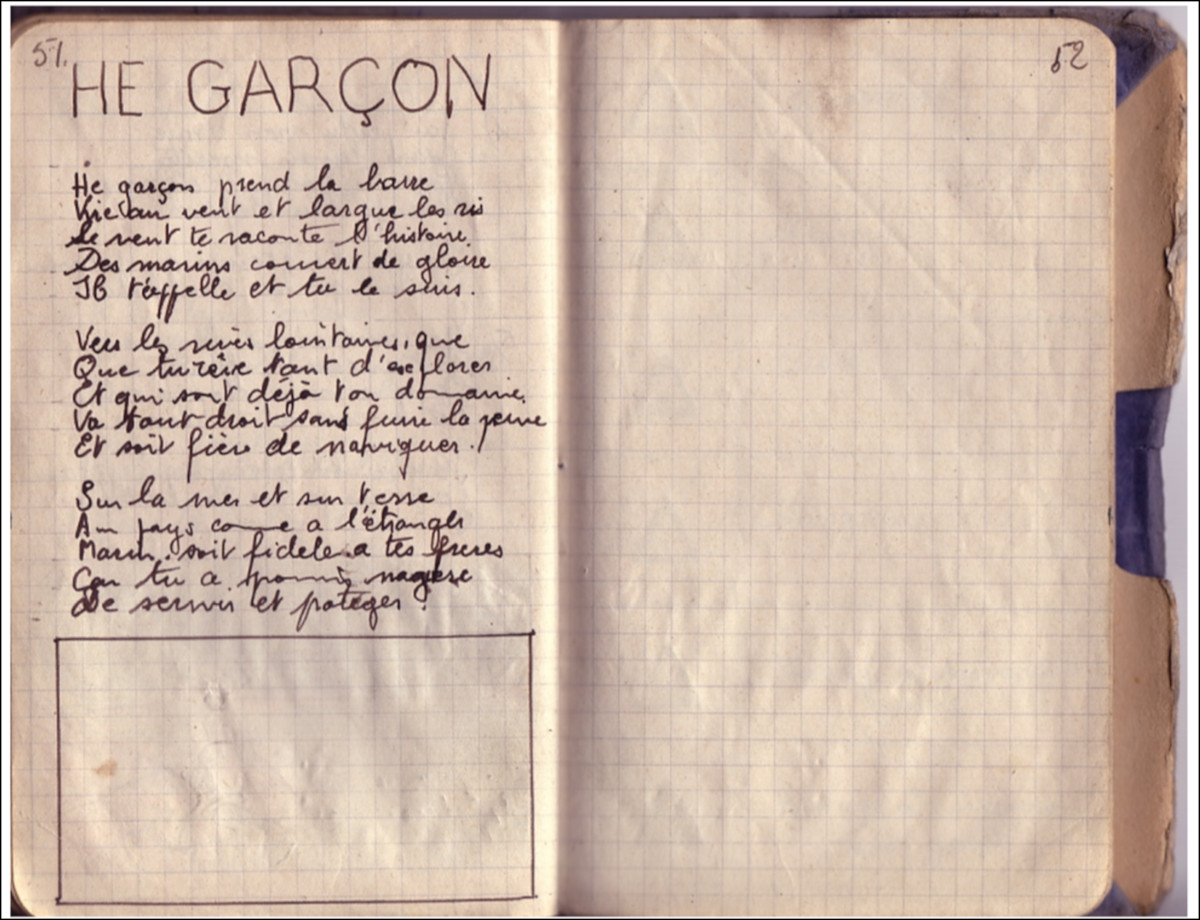 51.
HE GARÇON
He garçon prend la barre
Vire au vent et largue les ris
Le vent te raconte l'histoire
Des marins couvert de gloire
Il t'appelle et tu le suis.
Vers les rives lointaines, que
Que tu rêve tant d'explorer
Et qui sont déjà ton domaine,
Va tout droit sans fuire la peine
Et soit fière de naviguer !
Sur la mer et sur terre
Au pays come a l'étranger
Marin, soit fidele a tes freres
Car tu a promis
De servir et poteger !
52